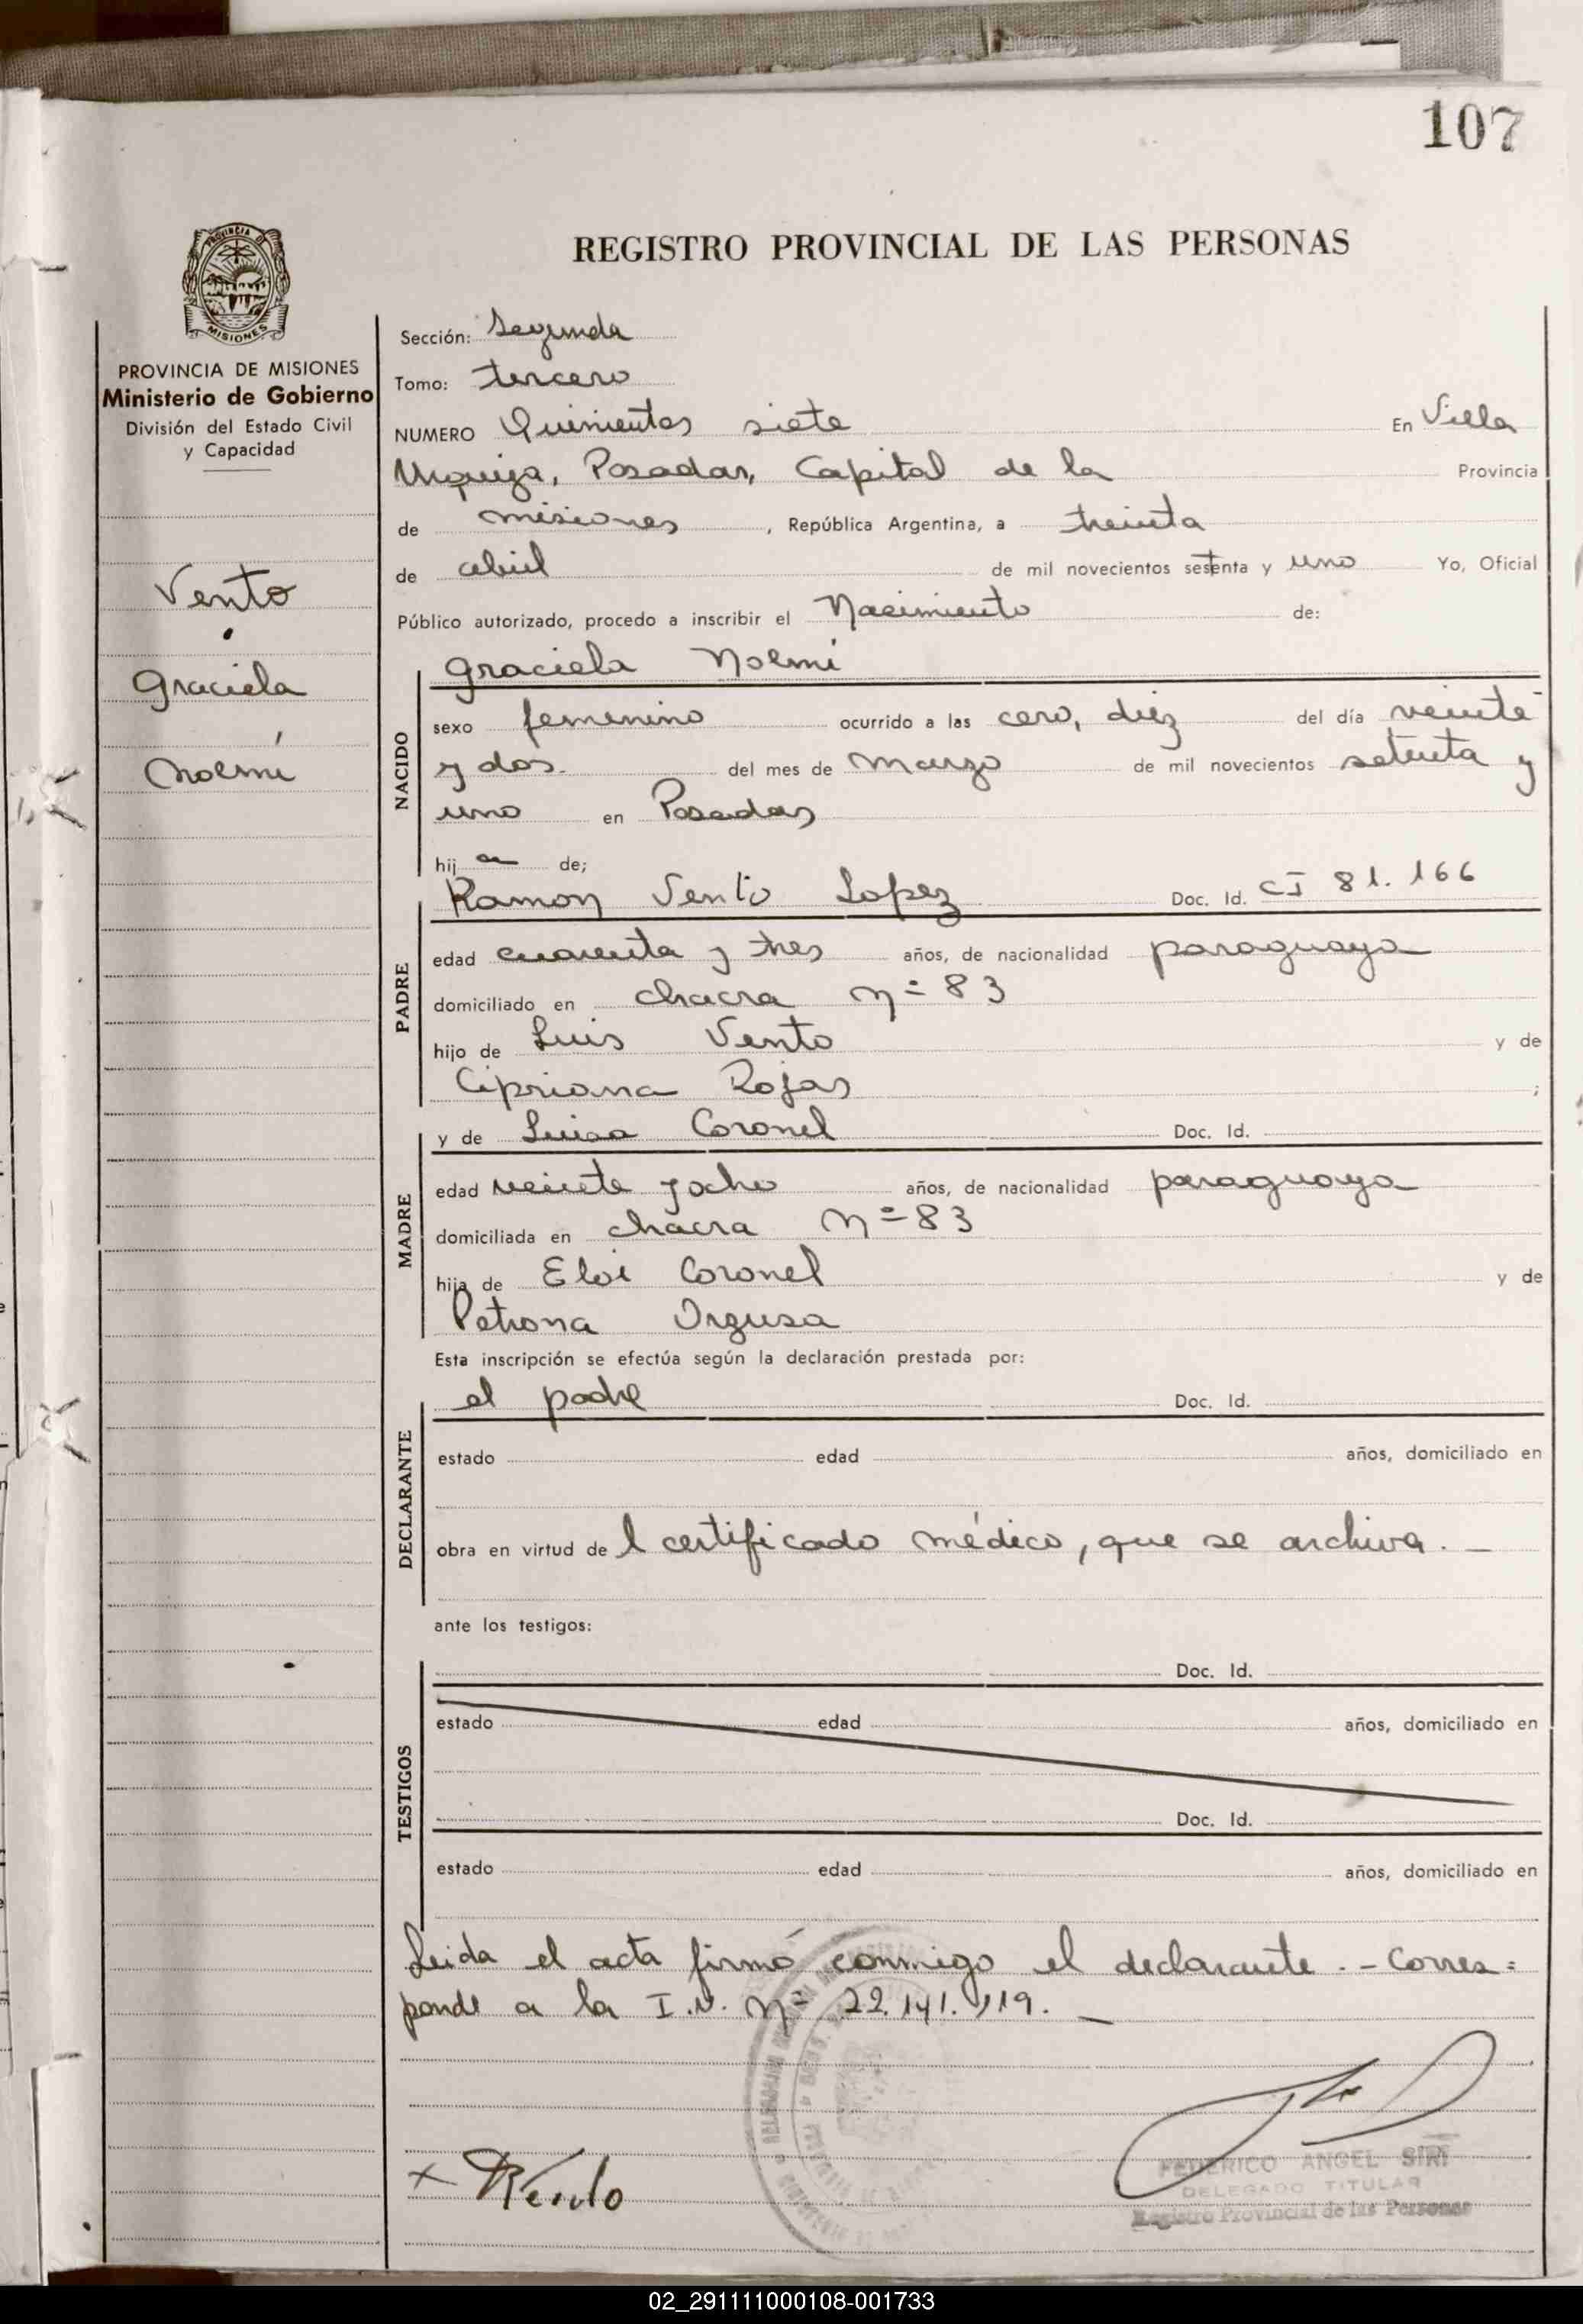 107
REGISTRO PROVINCIAL DE LAS PERSONAS
PROVINCIA DE
MISIONES
PROVINCIA DE MISIONES
Ministerio de Gobierno
División del Estado Civil
y Capacidad
Vento
Graciela
Noemí
Sección: Segunda
Tomo: tercero
NUMERO Quinientos siete En Villa
Urquiza, Posadas, Capital de la Provincia
de misiones, República Argentina, a treinta
de abril de mil novecientos setenta y uno Yo, Oficial
Público autorizado, procedo a inscribir el Nacimiento de:
Graciela Noemí
NACIDO
sexo femenino ocurrido a las cero, diez del día veinte
y dos. del mes de marzo de mil novecientos setenta y
uno en Posadas
hij a de;
Ramon Vento Lopez Doc. Id. CI 81.166
PADRE
edad cuarenta y tres años, de nacionalidad paraguaya
domiciliado en chacra nº 83
hijo de Luis Vento y de
Cipriana Rojas ;
y de Luisa Coronel Doc. Id.
MADRE
edad veinte y ocho años, de nacionalidad paraguaya
domiciliada en chacra nº 83
hija de Eloi Coronel y de
Petrona Orgusa
Esta inscripción se efectúa según la declaración prestada por:
el padre Doc. Id.
DECLARANTE
estado edad años, domiciliado en
obra en virtud de l certificado médico, que se archiva. –
ante los testigos:
Doc. Id.
TESTIGOS
estado edad años, domiciliado en
Doc. Id.
estado edad años, domiciliado en
Leida el acta firmó conmigo el declarante. – Corres=
ponde a la I.N. nº 22.141.119. –
x RVento
FEDERICO ANGEL SIRI
DELEGADO TITULAR
Registro Provincial de las Personas
02_291111000108-001733